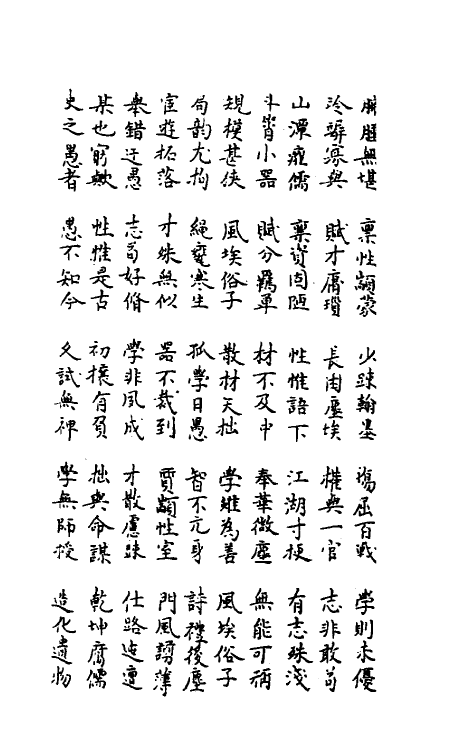 臃腫無堪 禀性顓蒙 少踈翰墨 塲屈百戰 學則未優
泠竮寡與 賦才庸瑣 長困塵埃 權輿一官 志非敢苟
山澤癯儒 禀資固陋 性惟語下 江湖寸梗 有志殊淺
斗筲小器 賦分羈單 材不及中 奉華微塵 無能可稱
規模甚俠 風埃俗子 散材天拙 學雖為善 風埃俗子
局韵尤拘 繩甕寒生 孤學日愚 智不亢身 詩禮後塵
宦遊拓落 才殊無似 器不裁到 質顓性室 門風謭薄
舉錯迂愚 志苟好脩 學非夙成 才散慮踈 仕路迍邅
某也窮歟 性惟是古 初攘有負 拙與命謀 乾坤腐儒
史之愚者 愚不知今 久試無裨 學無師授 造化遺物